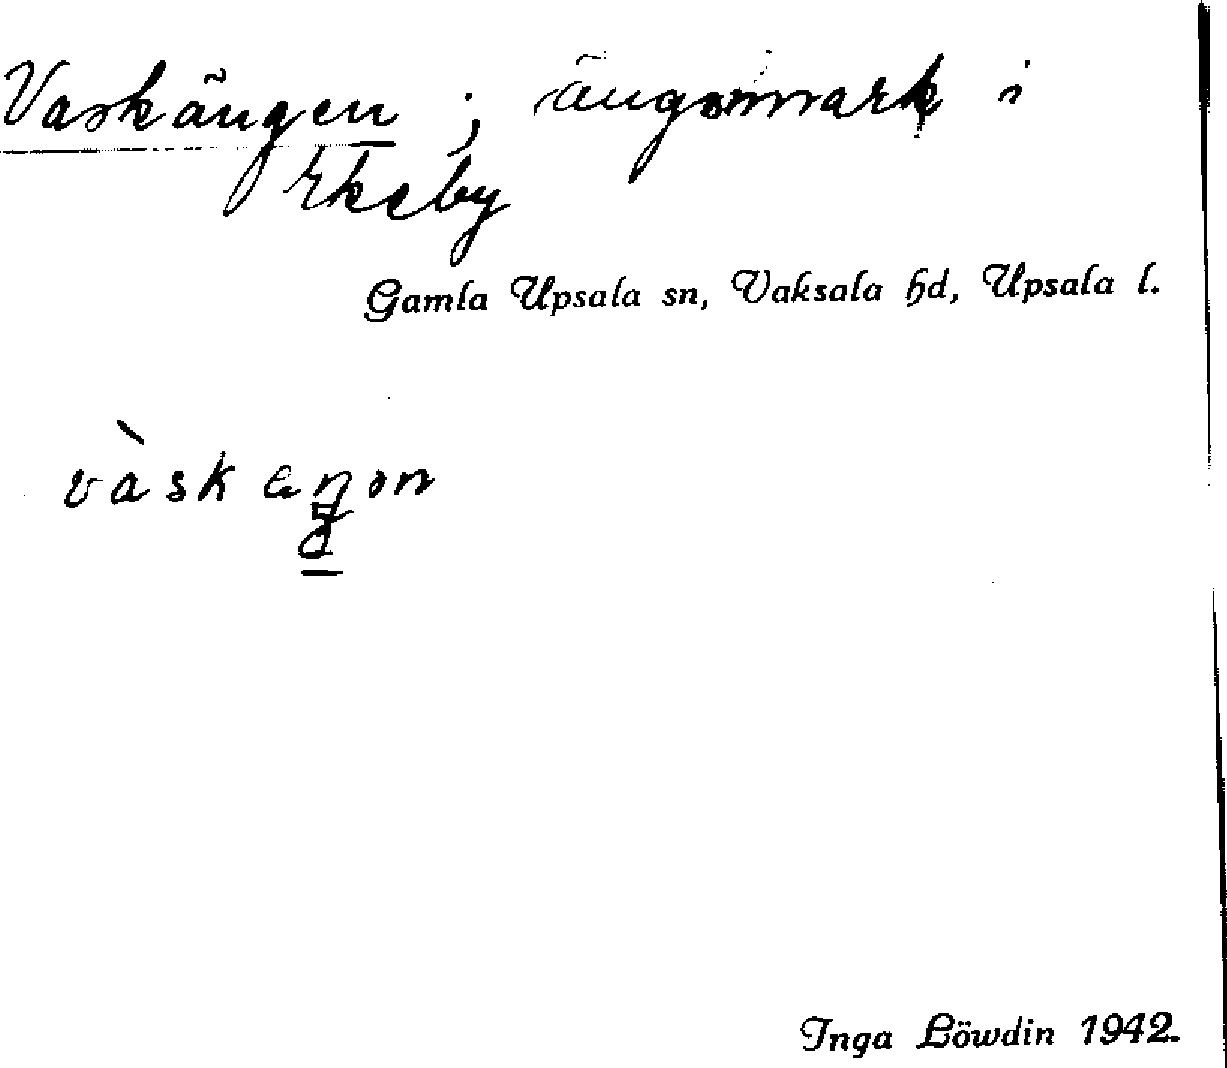 Vaskängen ; ängsmark i
Ekeby
Gamla Upsala sn, Vaksala hd, Upsala l.
Inga Löwdin 1942.